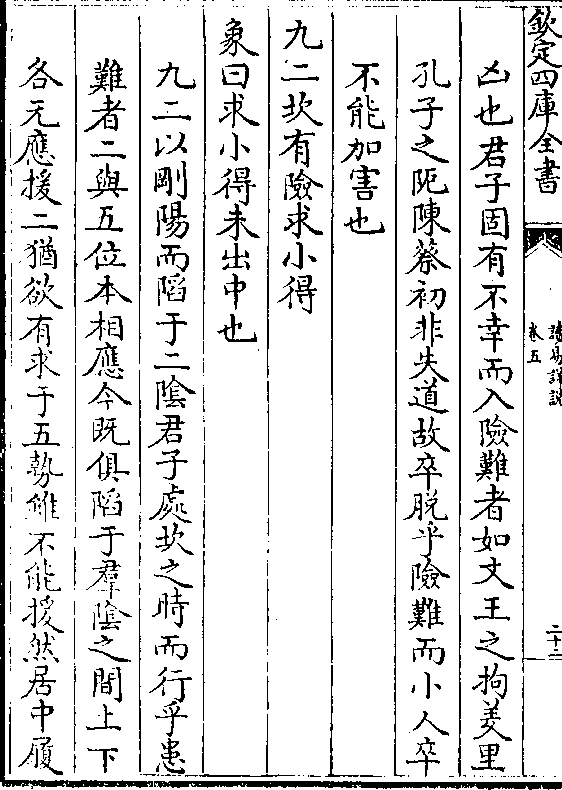 欽定四庫全書
讀易詳說
卷五
二十二
凶也君子固有不幸而入險難者如文王之拘羑里
孔子之阨陳蔡初非失道故卒脫乎險難而小人卒
不能加害也
九二坎有險求小得
象曰求小得未出中也
九二以剛陽而陷于二陰君子處坎之時而行乎患
難者二與五位本相應今既俱陷于羣陰之間上下
各无應援二猶欲有求于五勢雖不能援然居中履